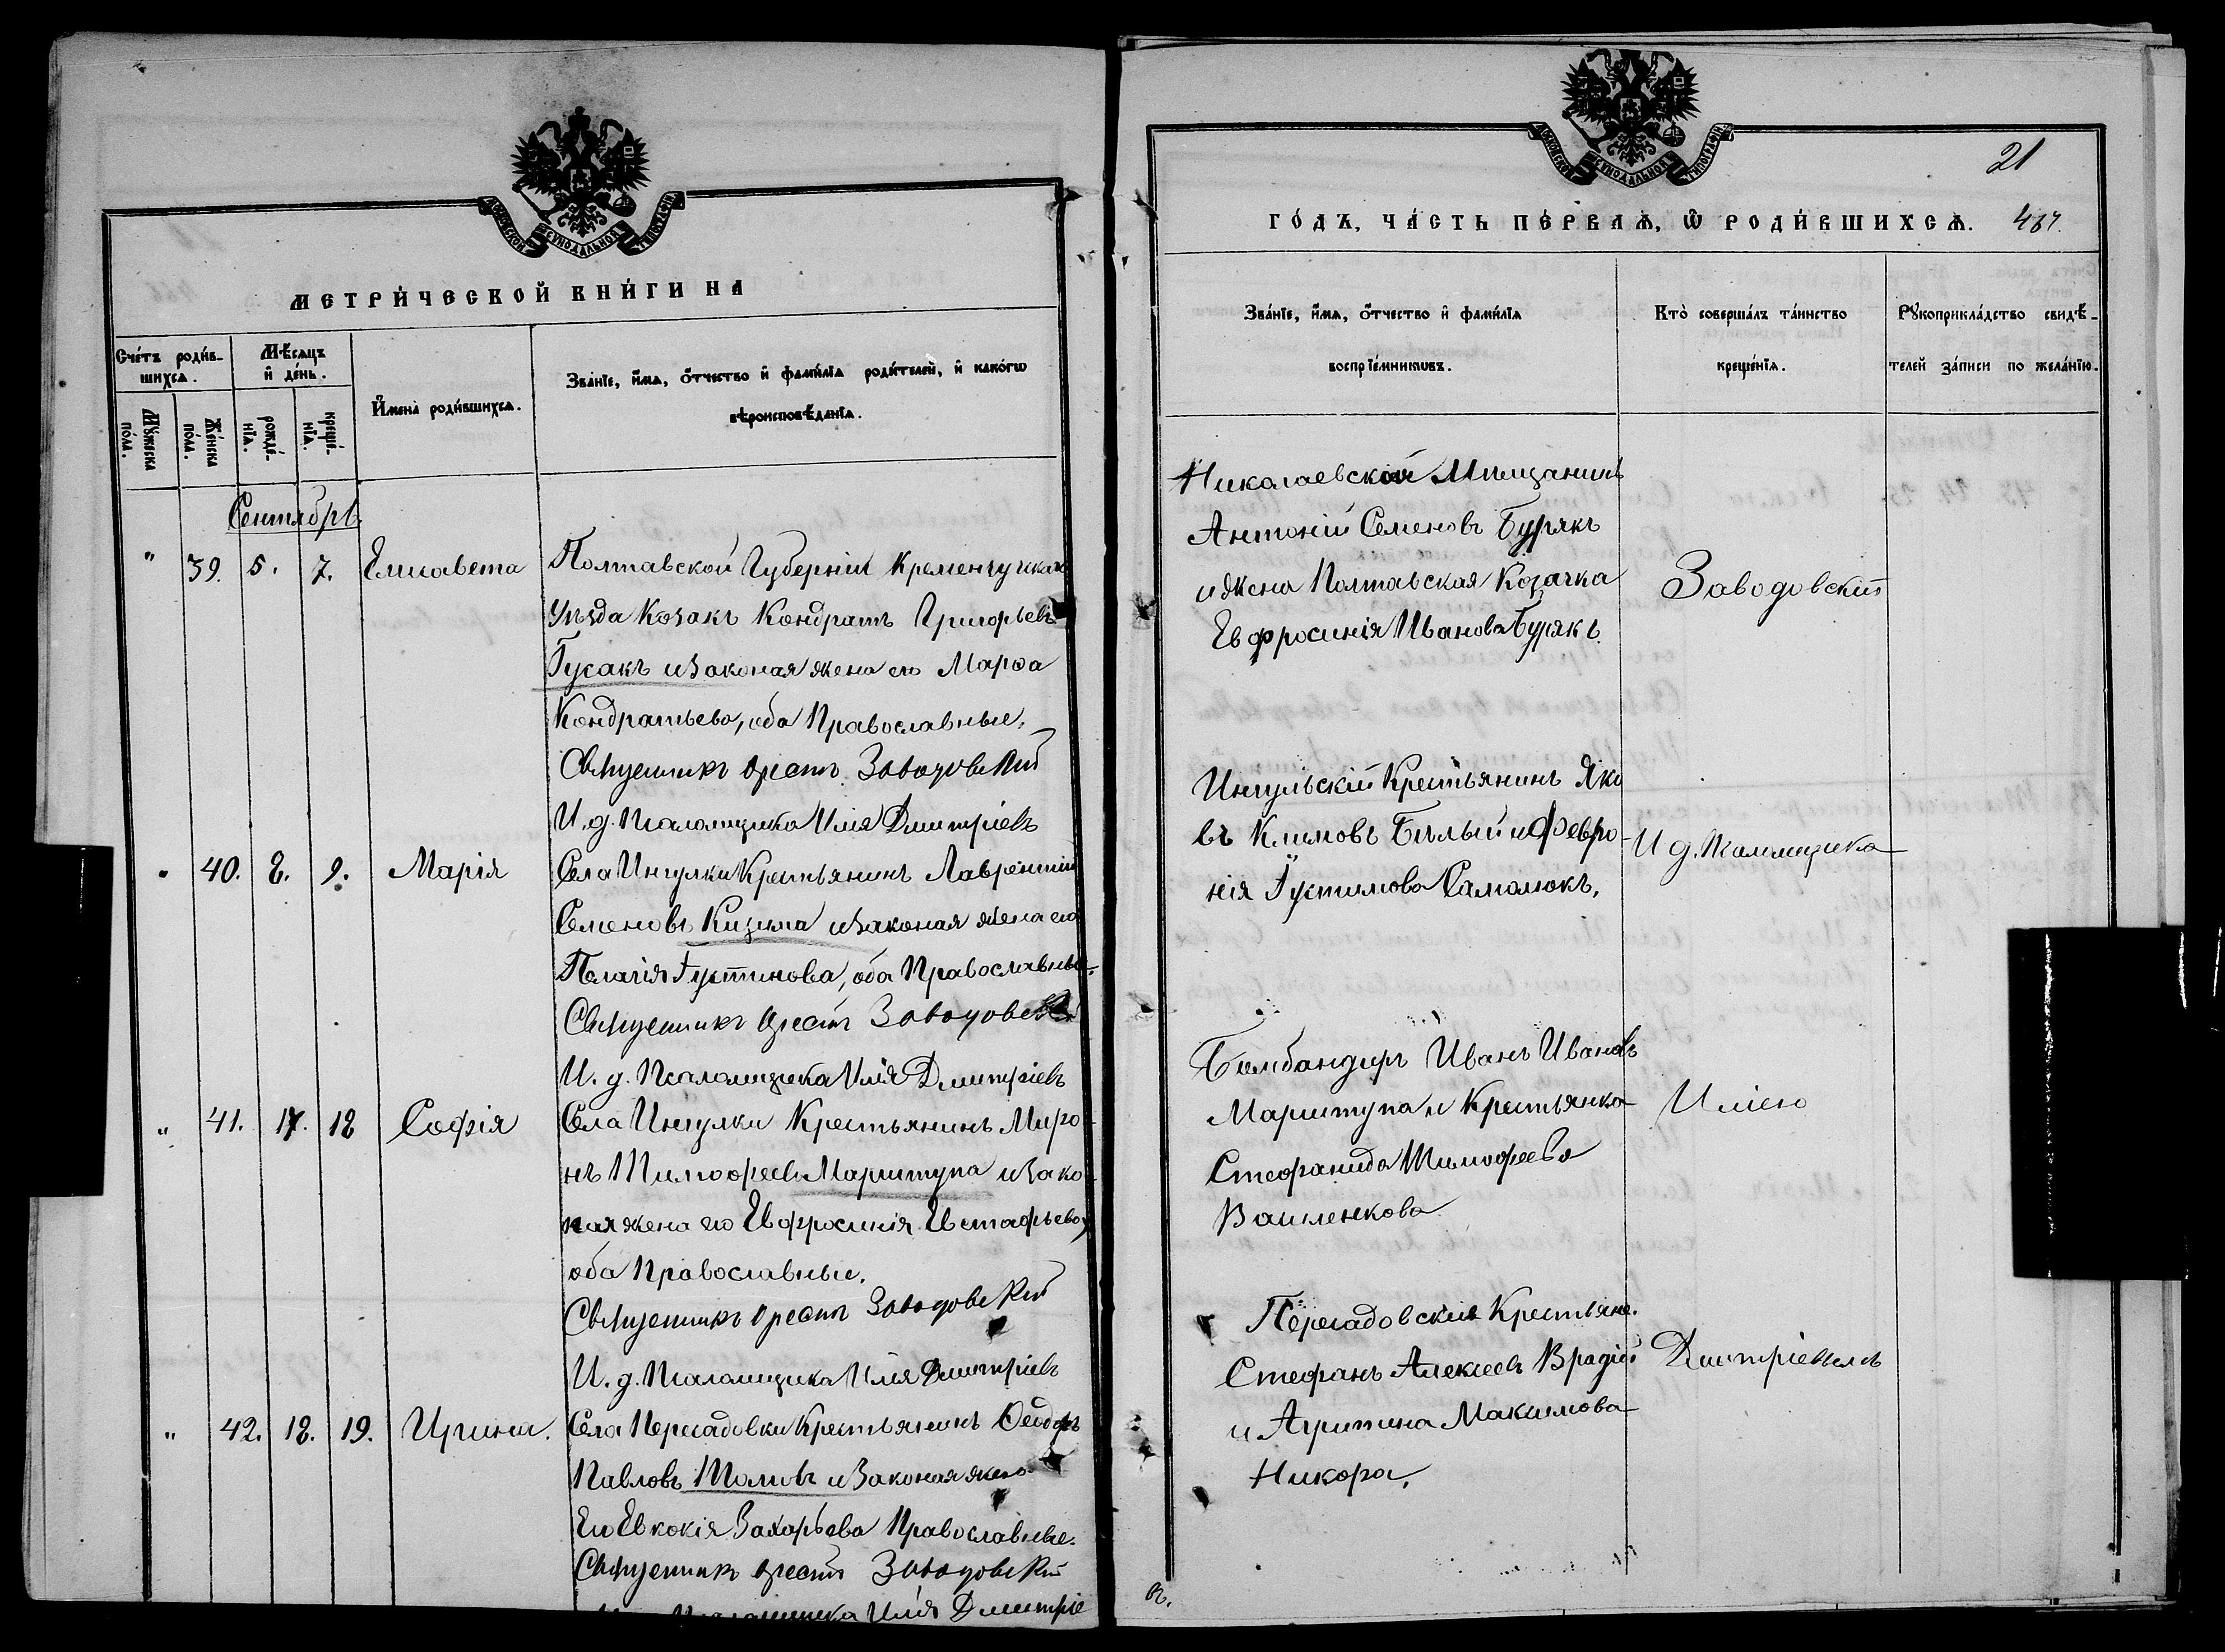 МЕТРИ́ЧЕСКОЙ КНИ́ГИ НА
Сче́тъ роди́в-
шихсѧ.
Мѣ́сѧцъ
и҆ де́нь.
И҆мена̀ роди́вшихсѧ.
Зва́нїе, и҆́мѧ, о҆́тчество и҆ фами́лїѧ роди́телей, и҆ како́гѡ
вѣроисповѣ́данїѧ.
Мꙋ́жеска
по́ла.
Же́нска
по́ла.
рожде́-
нїѧ.
креще́-
нїѧ.
Сентябрь
" 39. 5. 7. Елисавета
Полтавской Губерніи Кременчугскаго
Уѣзда Козакъ Кондратъ Григорьевъ
Гусакъ и законая жена его Марѳа
Кондратьева, оба Православные.
Священникъ Орестъ Заводовскій
И. д. Псаломщика Илія Дмитріевъ
" 40. 8. 9. Марія
Села Ингулки Крестьянинъ Лаврентій
Семеновъ Кизима и законая жена его
Пелагія Густинова, оба Православные.
Священникъ Орестъ Заводовскій
И. д. Псаломщика Илія Дмитріевъ
" 41. 17. 18 Софія
Села Ингулки Крестьянинъ Миро-
нъ Тимофеевъ Мариштупа и зако-
ная жена его Евфросинія Евстафьева,
оба Православные.
Священникъ Орестъ Заводовскій
И. д. Псаломщика Илія Дмитріевъ
" 42. 18. 19. Ирина.
Села Пересадовки Крестьянинъ Ѳеодоръ
Павловъ и законая жена
Его Евкокія Захарьева Православные.
Священникъ Орестъ Заводовскій
И. д. Псаломщика Илія Дмитріе
21
ГО́ДЪ, ЧА́СТЬ ПЕ́РВАѦ, Ѡ҆ РОДИ́ВШИХСѦ. 467.
Зва́нїе, и҆́мѧ, о҆́тчество и҆ фами́лїѧ
воспрїе́мниковъ.
Кто̀ соверша́лъ та́инство
креще́нїѧ.
Рꙋкоприкла́дство свидѣ́-
телей за́писи по жела́нїю.
Николаевскій Мѣщанинъ
Антоній Семеновъ Бурякъ
и жена Полтавская Козачка
Евфросинія Иванова Бурякъ.
Заводовскій
Ингульскій Крестьянинъ Яко
въ Климовъ Бѣлый и Февро-
нія Густинова Самолюкъ.
И д. Псаломщика
Бомбандиръ Иванъ Ивановъ
Мариштупа и Крестьянка
Стефанида Тимофеева
Василенкова
Иліею
Пересадовскіе Крестьяне.
Стефанъ Алексеевъ Врадій
и Агрипина Максимова
Никора.
Дмитріевымъ